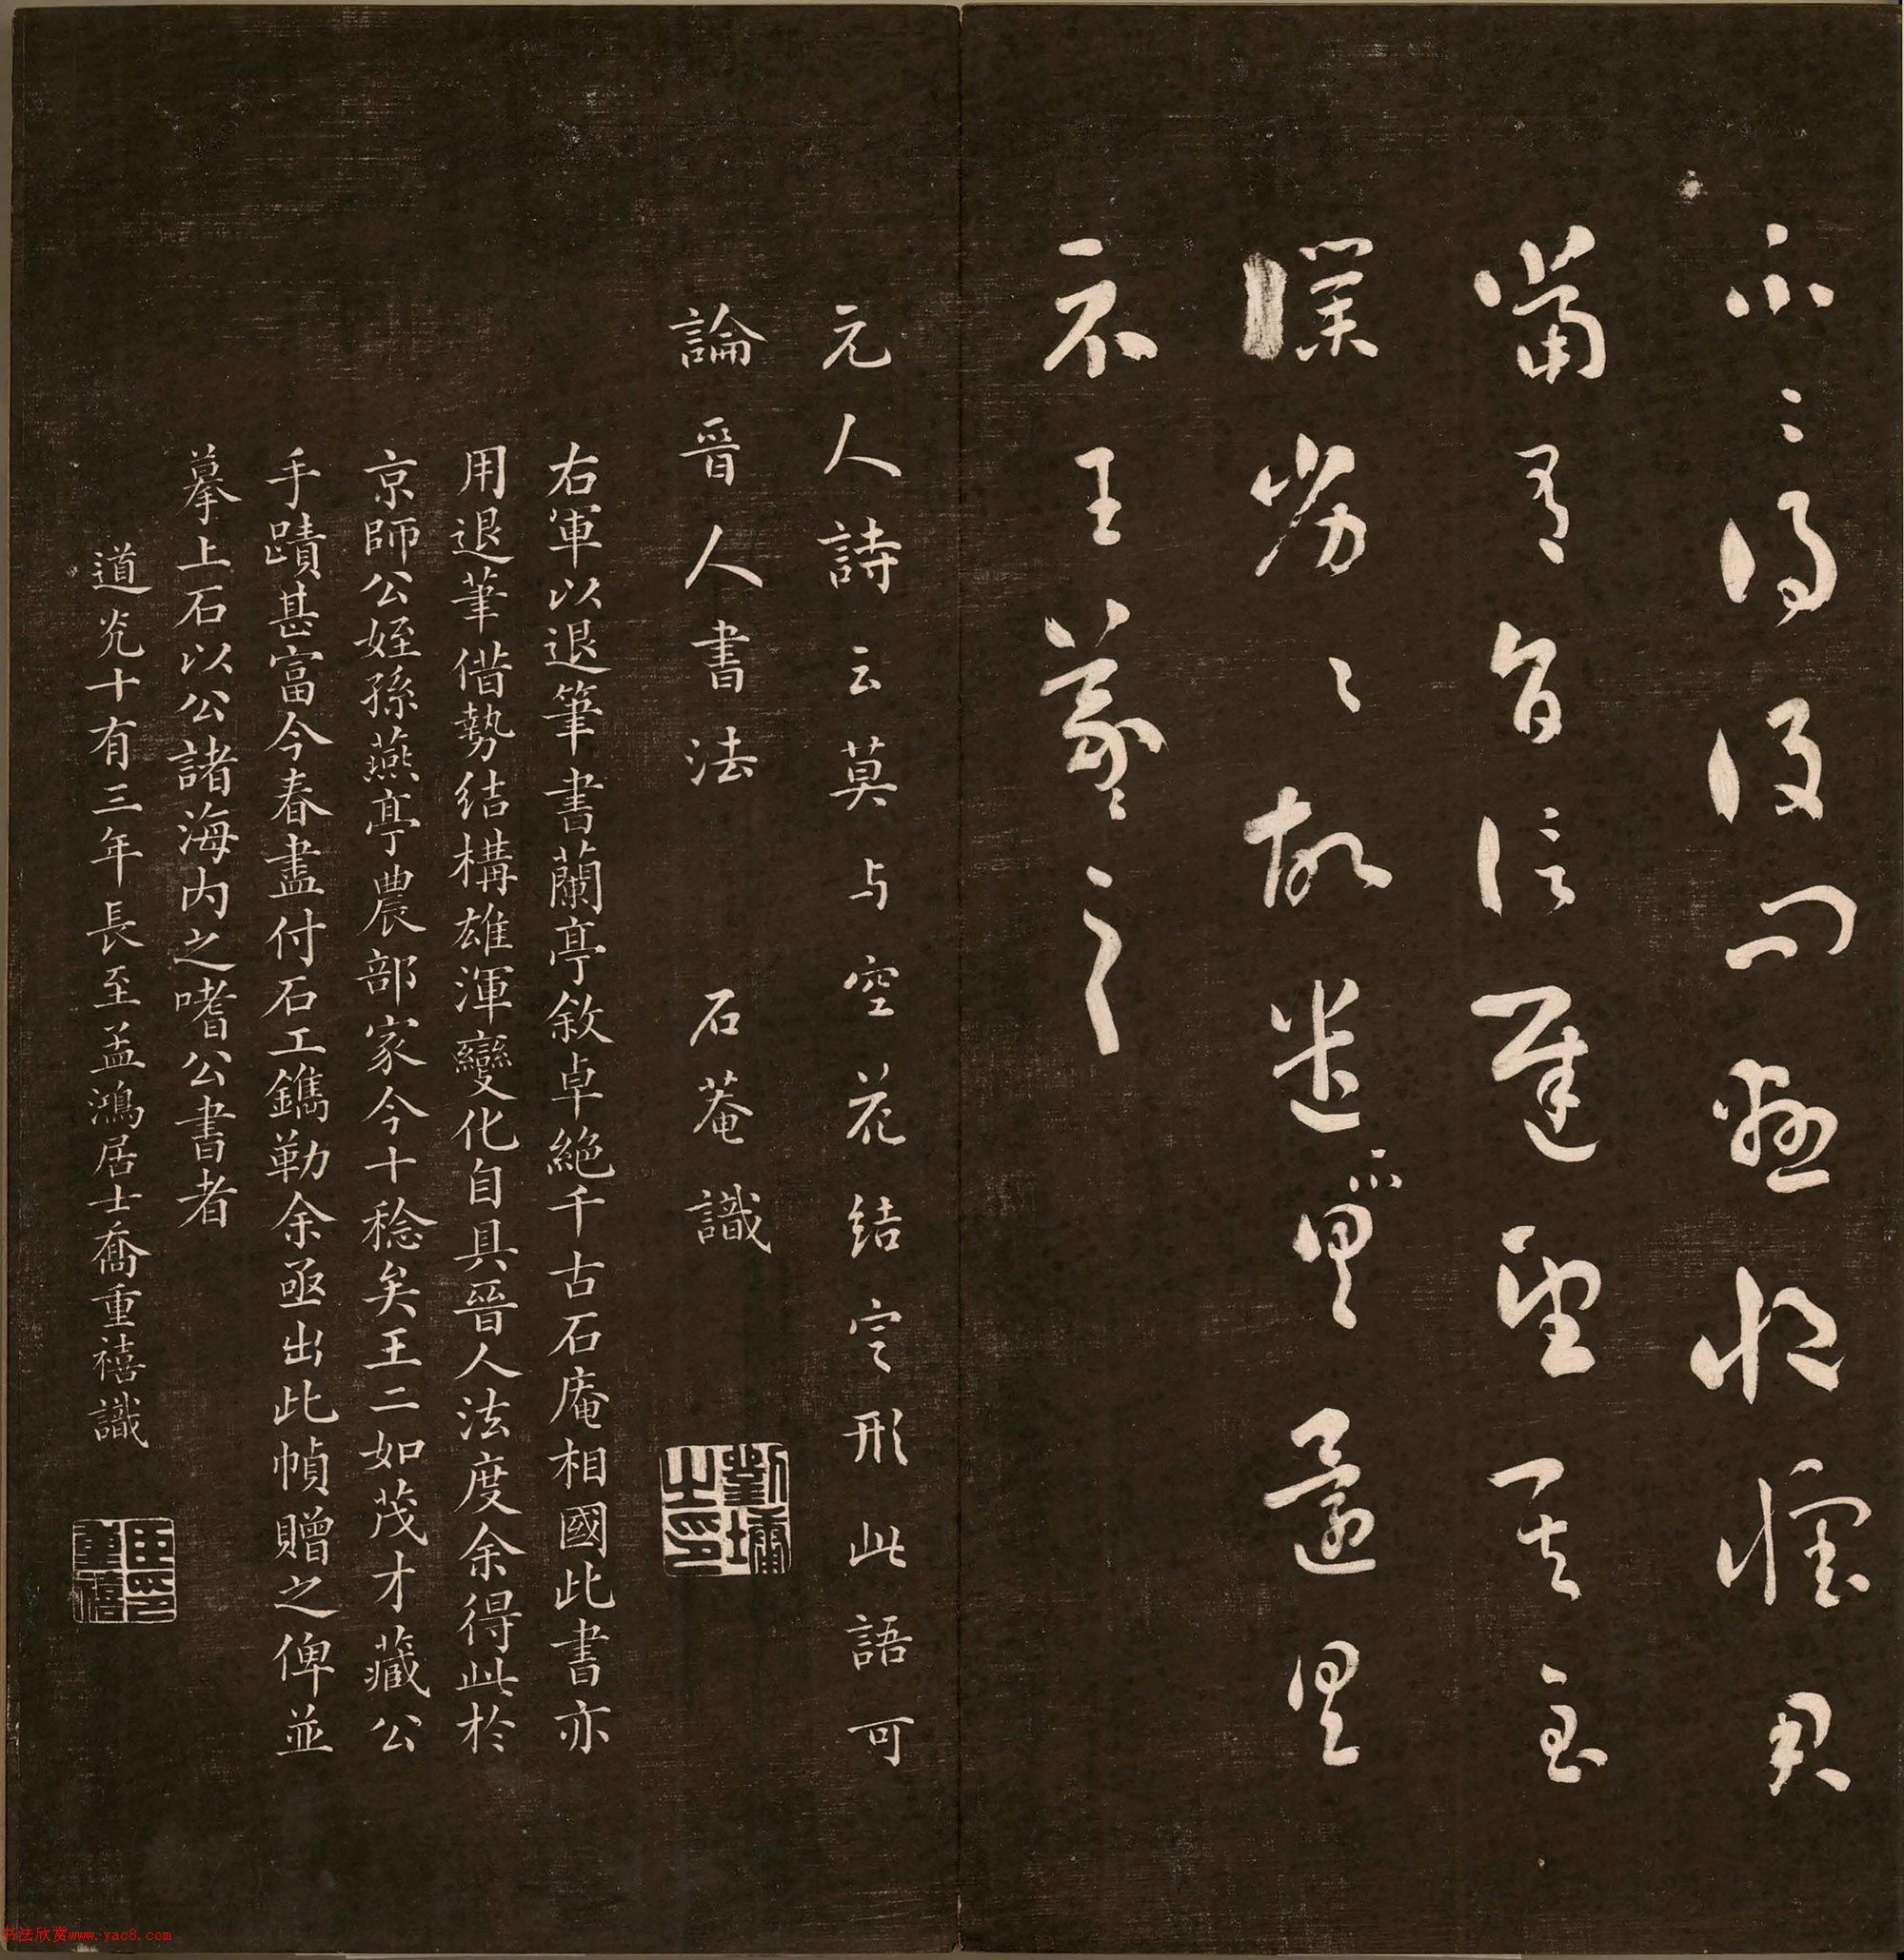 得後問懸君
當有旨信遲望其至
僕劣〻故遣不具還具
示王羲之
元人詩云莫与空花結定形此語可
論晉人書法 石菴識
劉墉之印
右軍以退筆書蘭亭敘卓絕千古石庵相國此書亦
用退筆借勢結構雄渾變化自具晉人法度余得此於
京師公姪孫燕亭農部家今十稔矣王二如茂才藏公
手蹟甚富今春盡付石工鐫勒余亟出此幀贈之俾並
摹上石以公諸海內之嗜公書者
道光十有三年長至孟鴻居士喬重禧識
重禧
书法欣赏www.yac8.com